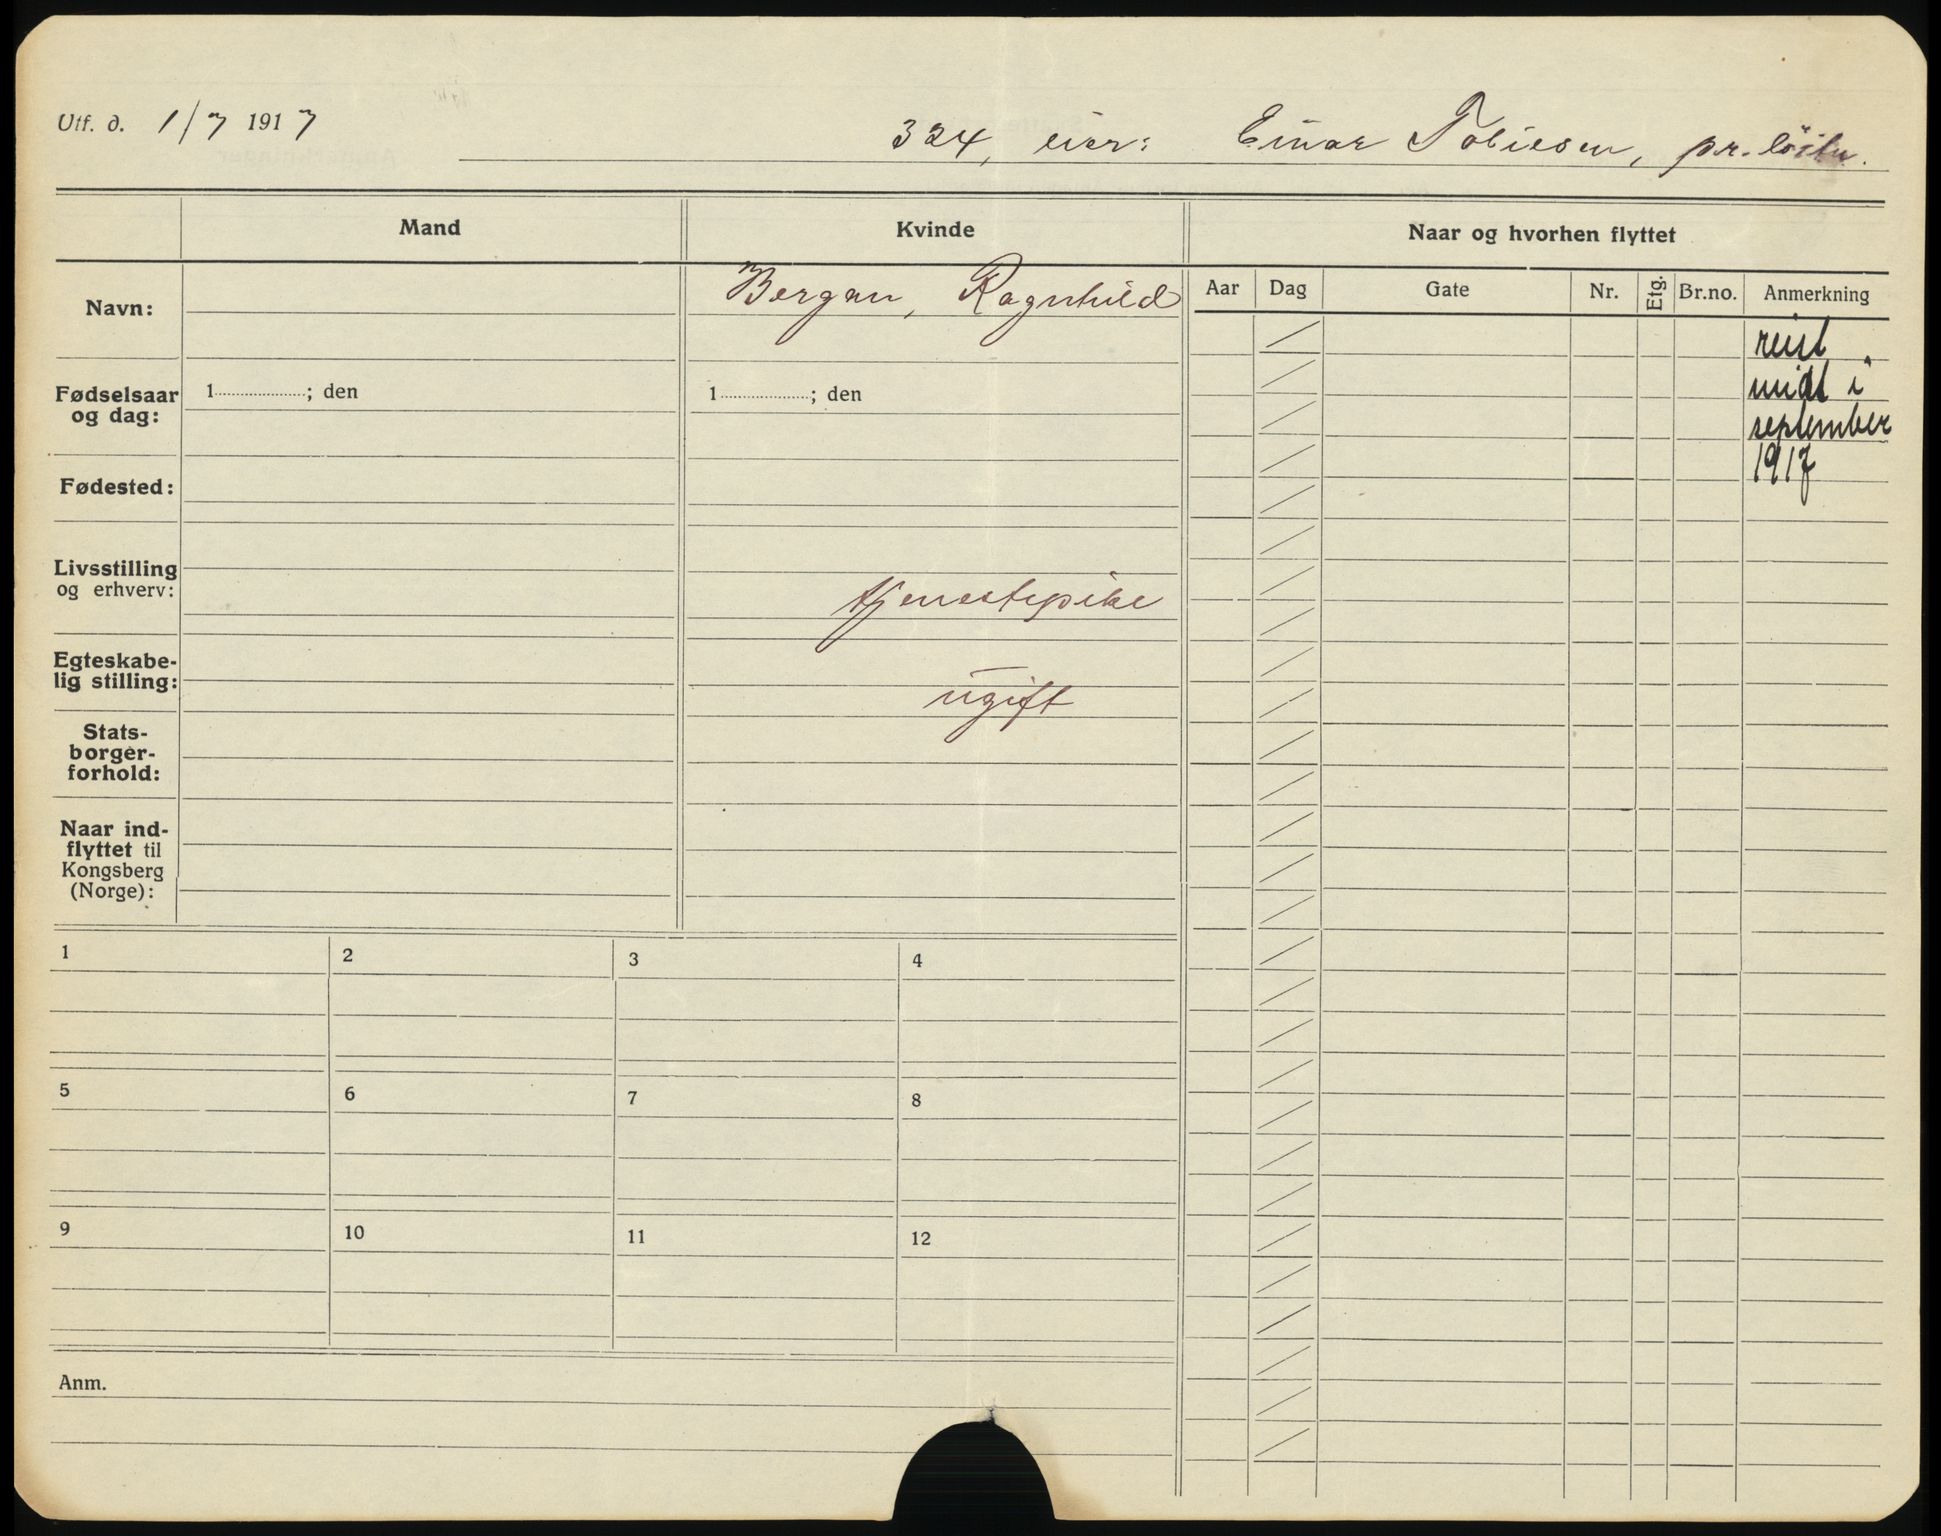 Utf. d. 1/7 1917
324, eier: Einar Tobiesen, pr. löitn.
Mand Kvinde Naar og hvorhen flyttet
Aar Dag Gate Nr. Etg. Br.no. Anmerkning
Navn: Bergan, Ragnhild
reist
midt i
september
1917
Fødselsaar
og dag: 1 ; den 1 ; den
Fødested:
Livsstilling
og erhverv: tjenestepike
Egteskabe-
lig stilling: ugift
Stats-
borger-
forhold:
Naar ind-
flyttet til
Kongsberg
(Norge):
1 2 3 4
5 6 7 8
9 10 11 12
Anm.